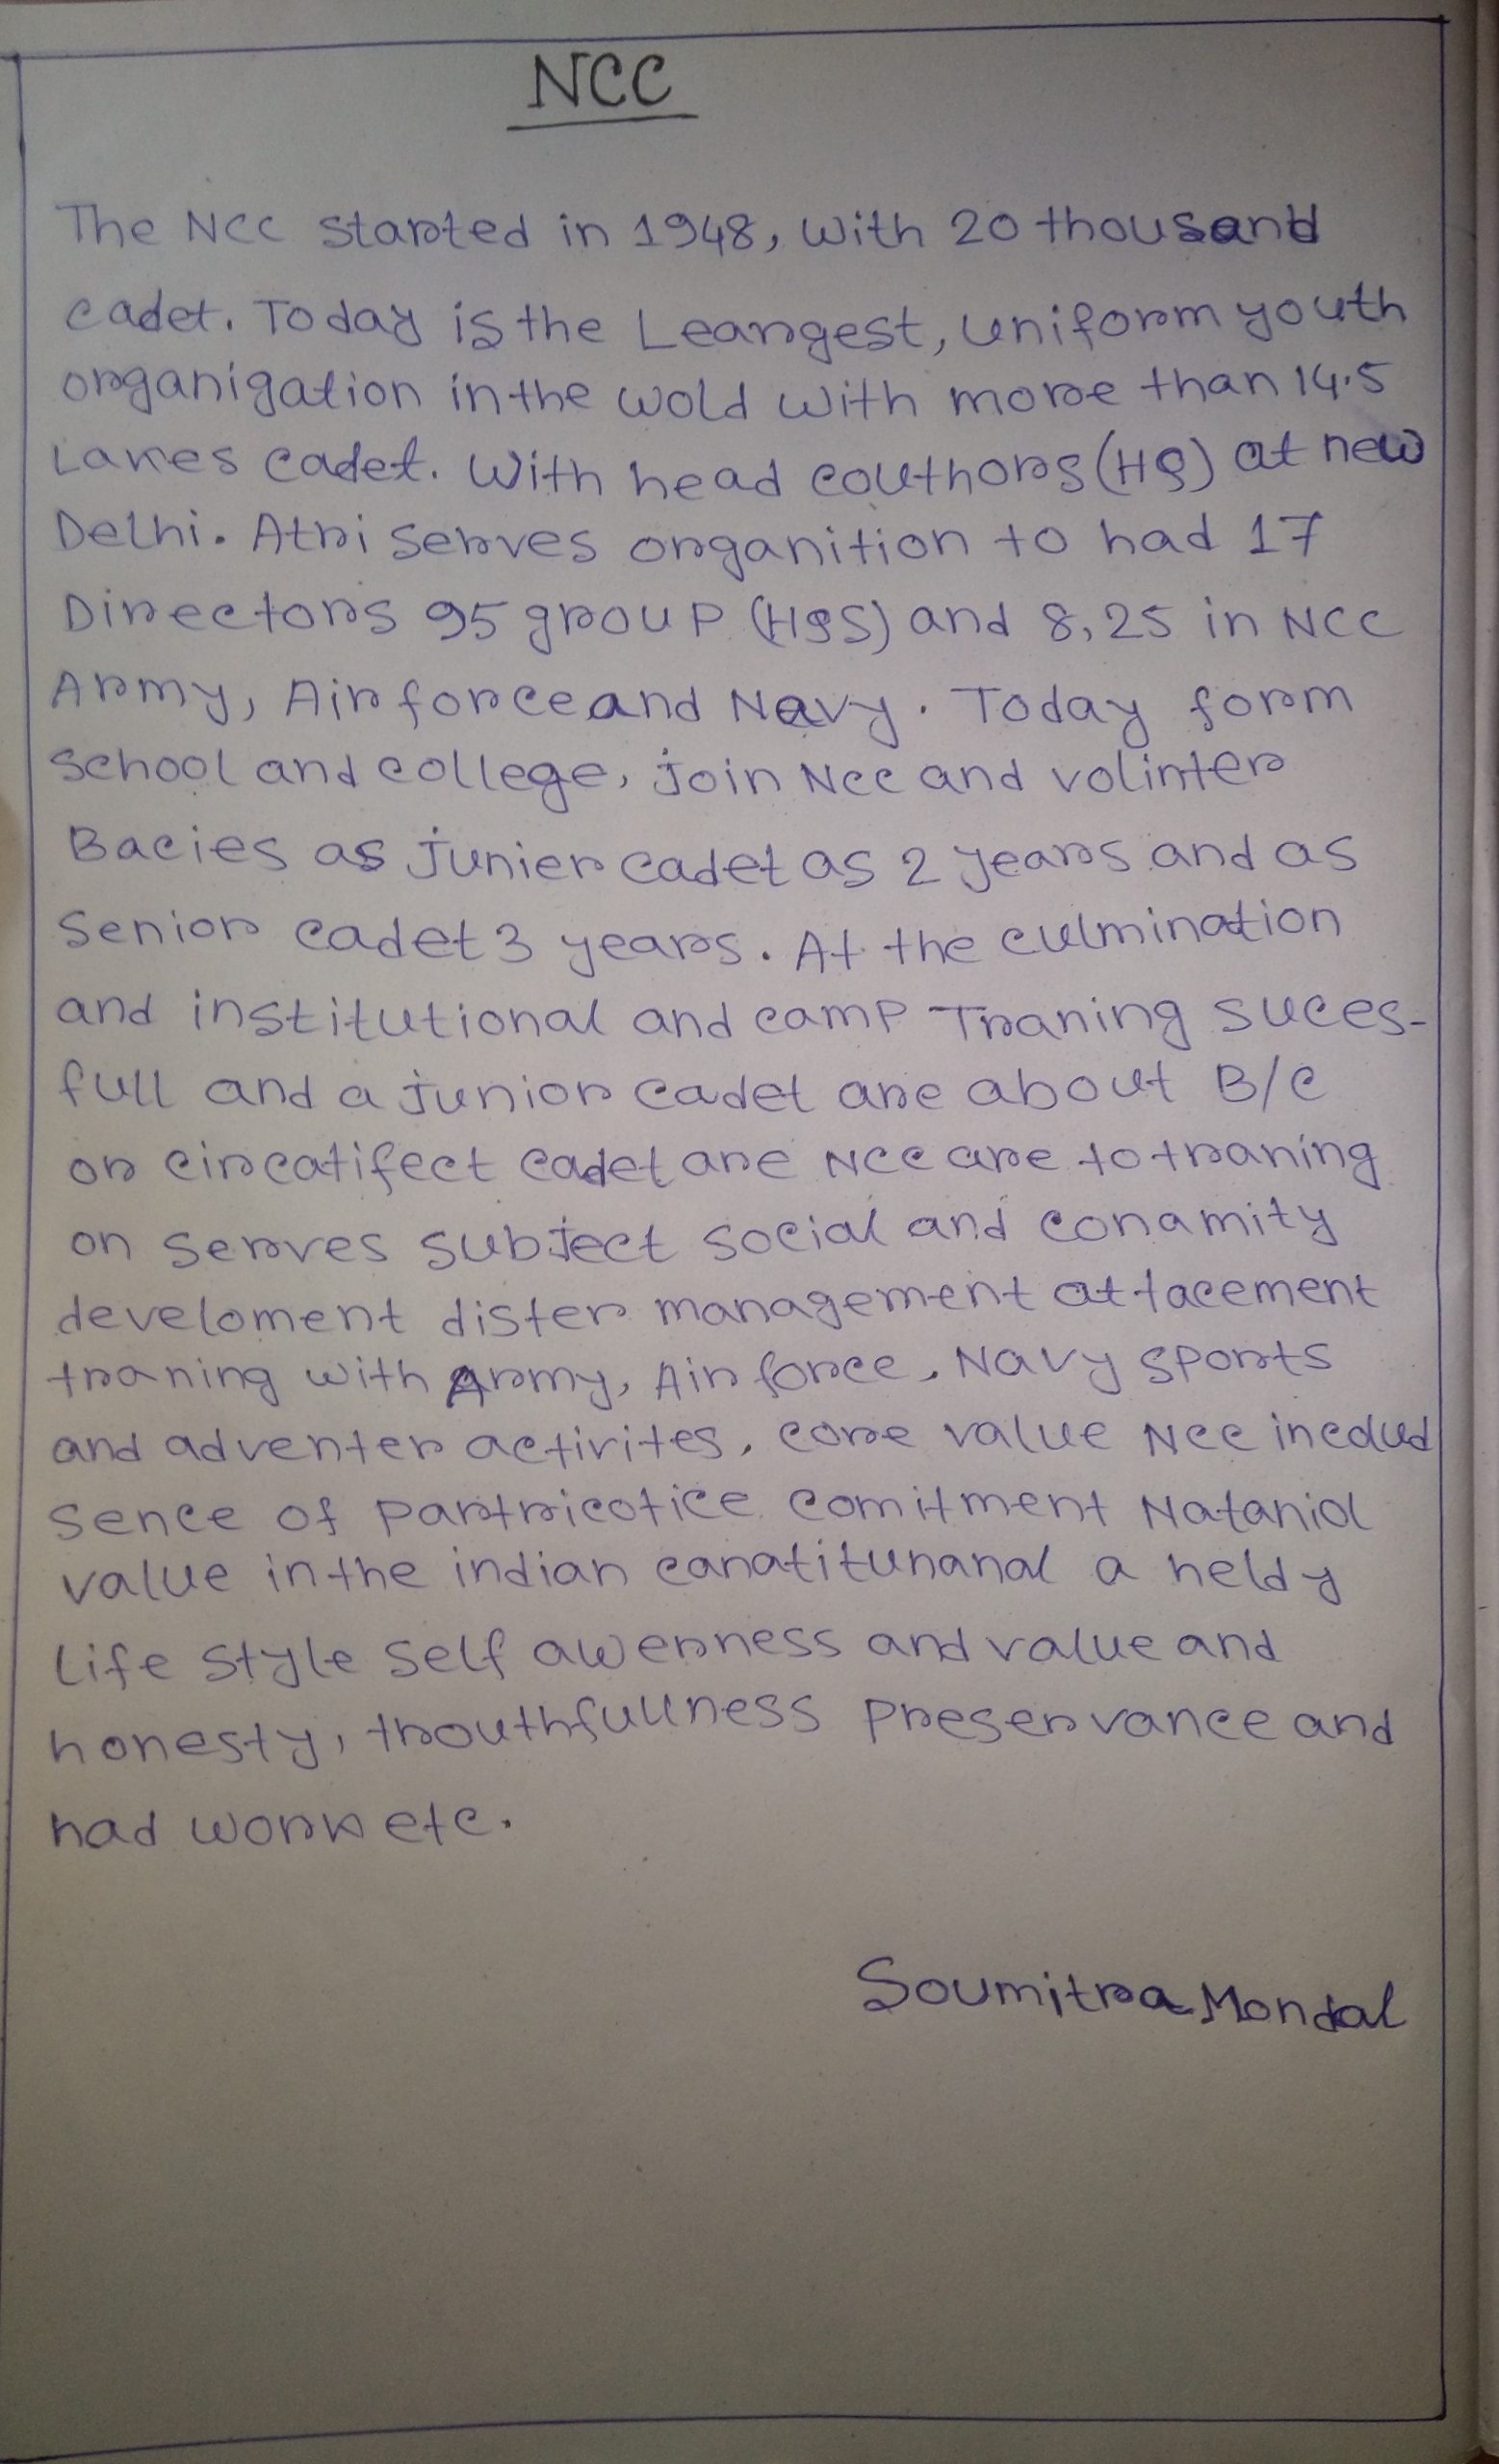 NCC
The NCC started in 1948, with 20 thousand
cadet. Today is the Leargest, uniform youth
organigation in the wold with more than 14.5
Lakes cadet. With head couthors (HQ) at new
Delhi. Atri serves organition to had 17
Directors 95 group (HQS) and 8,25 in NCC
Army, Air force and Navy. Today form
school and college, join NCC and volinter
Bacies as junier cadet as 2 years and as
Senior cadet 3 years. At the culmination
and institutional and camp Traning suces-
full and a junior cadet are about B/C
or circatifect cadet are NCC are to traning
on serves subject social and conamity
develoment dister management attacement
traning with Army, Air force, Navy sports
and adventer activites, core value NCC includ
sence of partricotice comitment Nataniol
value in the indian canatitunanal a heldy
life style self awerness and value and
honesty, trouthfullness preservance and
had work etc.
Soumitra Mondal